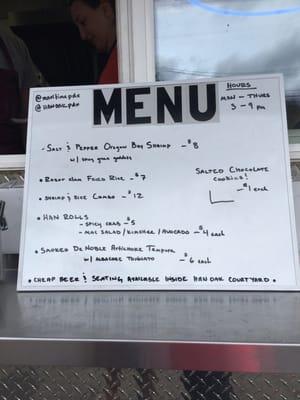 @maritimepdx
@HANOAKPDX
MENU
HOURS
MON - THURS
3 - 9 pm
- SALT & PEPPER Oregon Bay Shrimp - $8
w/ spicy
• ROAST HAM FRIED RICE - $7
• SHRIMP & RICE COMBO - $12
• HAN ROLLS
- SPICY CRAB - $5
- MAC SALAD / KIMCHEE / AVOCADO - $4 each
• SMOKED DE NOBLE ARTICHOKE TEMPURA
w/ ALBACORE TONNATO - $6 each
SALTED CHOCOLATE
COOKIES!
- $1 each
• CHEAP BEER & SEATING AVAILABLE INSIDE HAN OAK COURTYARD •